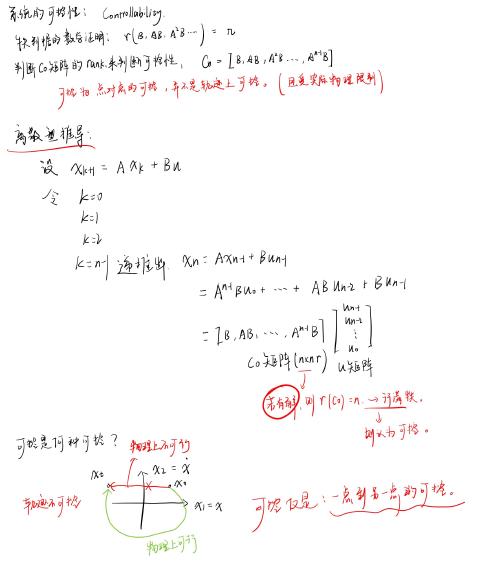 系统的可控性: Controllability.
判据的数学证明: r(B, AB, A²B ...) = n
判断Co矩阵的rank来判断可控性, Co = [B, AB, A²B ..., Aⁿ⁻¹B]
可控为点对点的可控,并不是轨迹上可控。(因受实际物理限制)
离散型推导:
设 xₖ₊₁ = A xₖ + B u
令 k=0
k=1
k=2
k=n-1 递推出 xₙ = Axₙ₋₁ + Buₙ₋₁
= Aⁿ⁻¹Bu₀ + ... + ABuₙ₋₂ + Buₙ₋₁
= [B, AB, ..., Aⁿ⁻¹B] [uₙ₋₁
uₙ₋₂
⋮
u₀]
Co矩阵(n×nr) u矩阵
若有解,则 r(Co)=n. → 行满秩.
则认为可控。
可控是何种可控?
物理上不可行
x₂ = ẋ
x₀
x₁ = x
轨迹不可控
物理上可行
可控仅是:一点到另一点的可控。